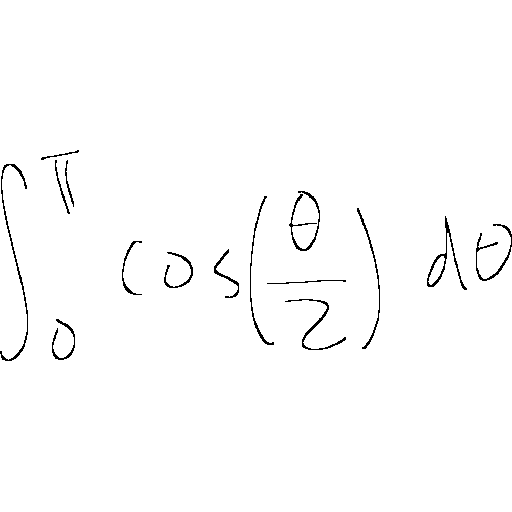 \int_0^\pi \cos\left(\frac{\theta}{2}\right) d\theta